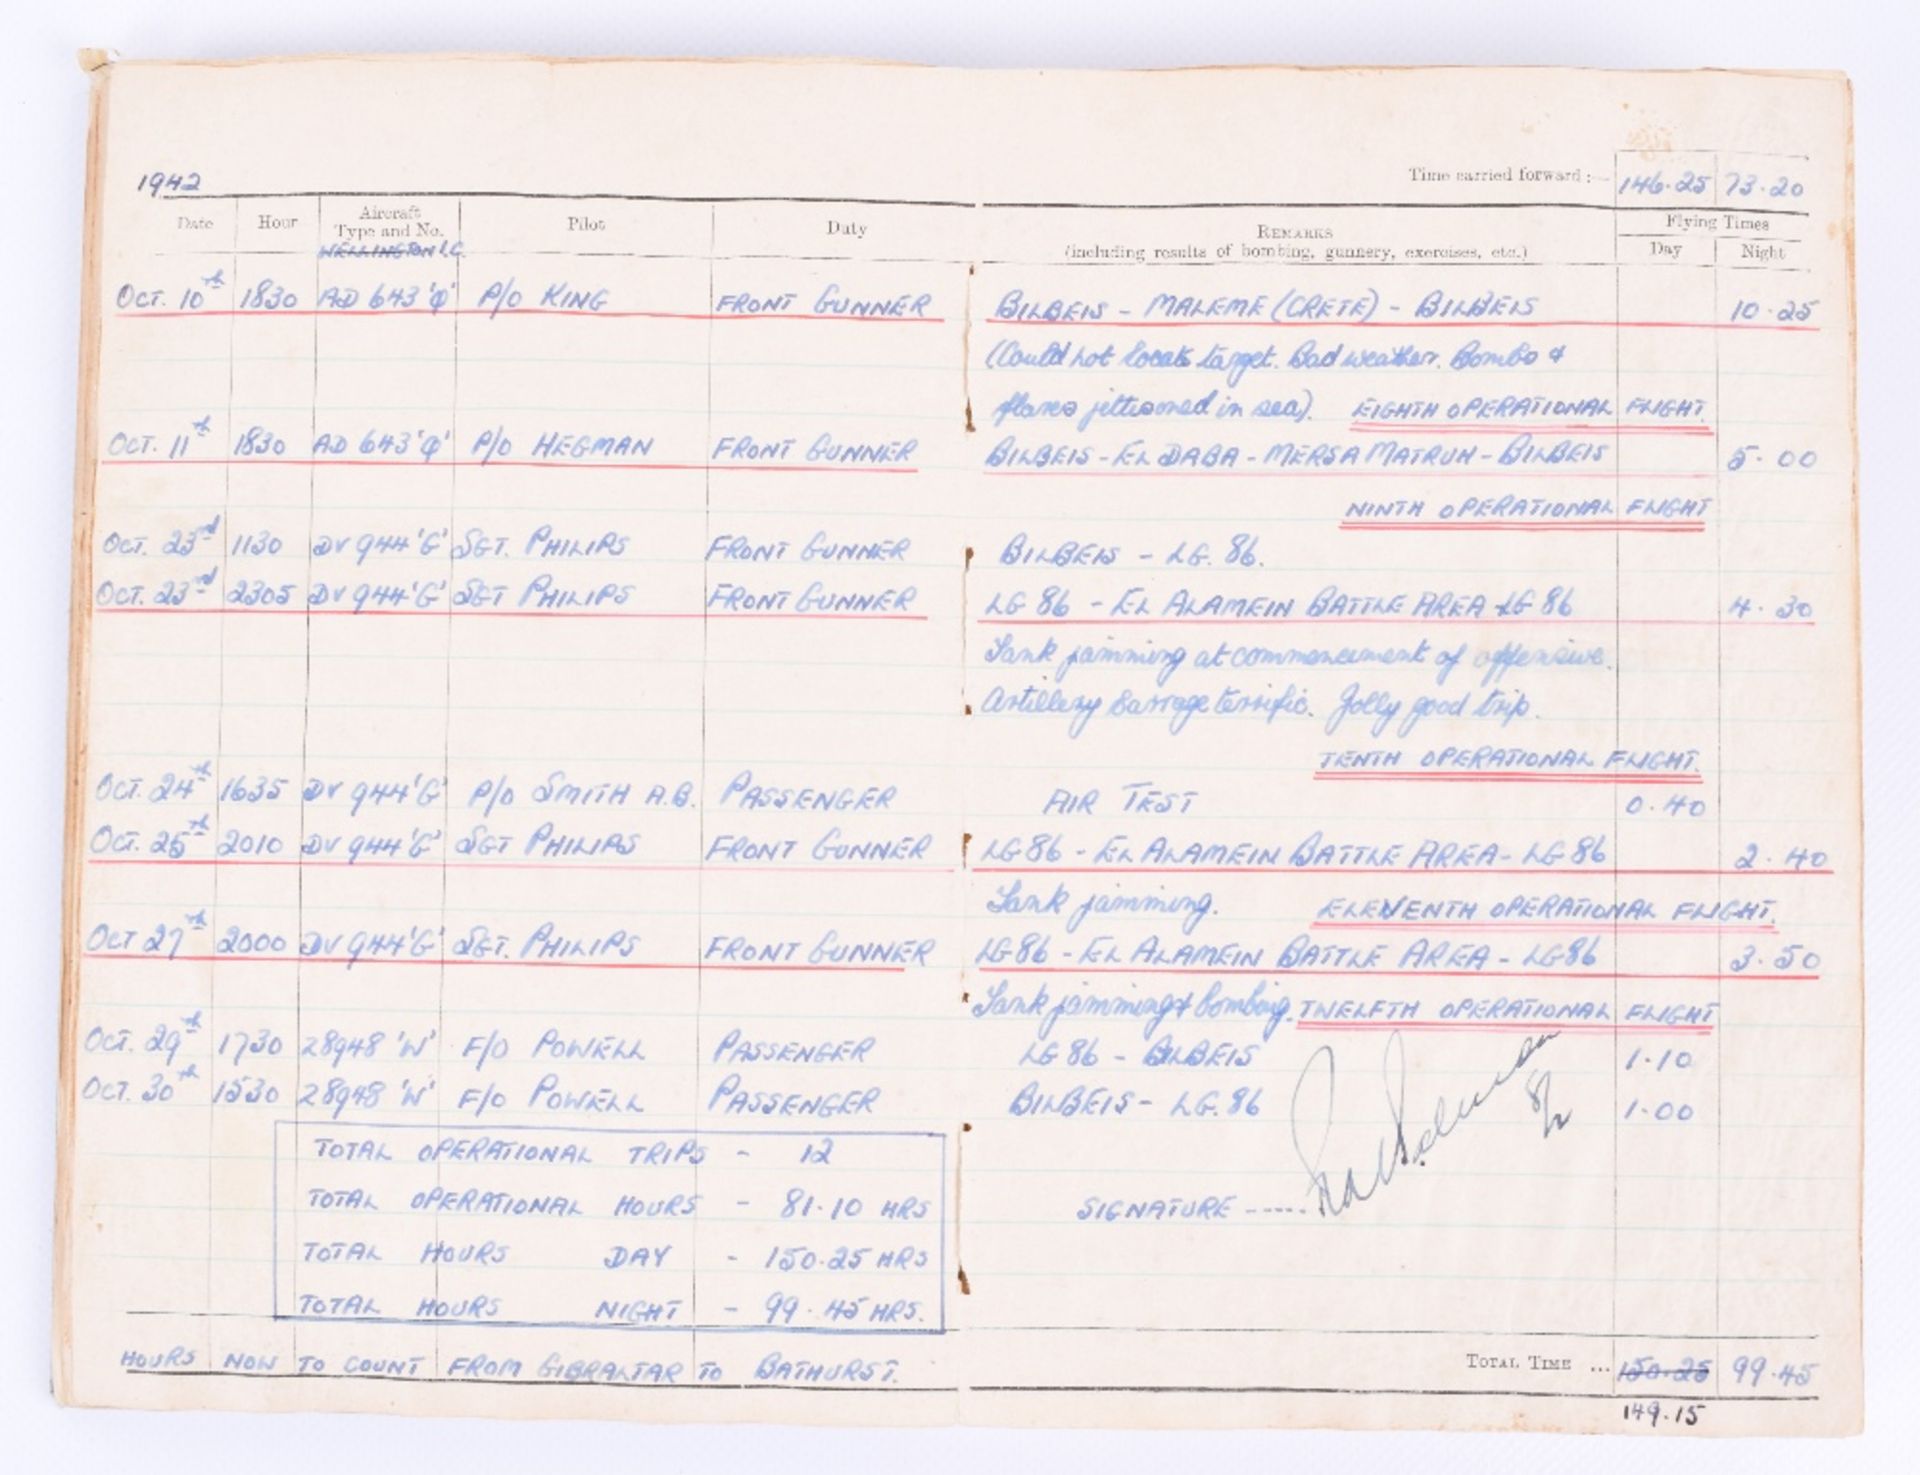 1942 Time carried forward :— 146.25 73.20
Date Hour Aircraft Type and No. Pilot Duty REMARKS (including results of bombing, gunnery, exercises, etc.) Flying Times Day Night
WELLINGTON I.C.
OCT. 10th 1830 AD 643 'Q' P/O KING FRONT GUNNER BILBEIS - MALEME (CRETE) - BILBEIS 10.25
(Could not locate target. Bad weather. Bombs &
flares jettisoned in sea). EIGHTH OPERATIONAL FLIGHT.
OCT. 11th 1830 AD 643 'Q' P/O HEGMAN FRONT GUNNER BILBEIS - EL DABA - MERSA MATRUH - BILBEIS 5.00
NINTH OPERATIONAL FLIGHT
OCT. 23rd 1130 DV 944 'G' SGT. PHILIPS FRONT GUNNER BILBEIS - LG. 86.
OCT. 23rd 2305 DV 944 'G' SGT PHILIPS FRONT GUNNER LG 86 - EL ALAMEIN BATTLE AREA - LG 86 4.30
Tank jamming at commencement of offensive.
Artillery barrage terrific. Jolly good trip.
TENTH OPERATIONAL FLIGHT.
OCT. 24th 1635 DV 944 'G' P/O SMITH A.B. PASSENGER AIR TEST 0.40
OCT. 25th 2010 DV 944 'G' SGT PHILIPS FRONT GUNNER LG 86 - EL ALAMEIN BATTLE AREA - LG 86 2.40
Tank jamming. ELEVENTH OPERATIONAL FLIGHT.
OCT 27th 2000 DV 944 'G' SGT. PHILIPS FRONT GUNNER LG 86 - EL ALAMEIN BATTLE AREA - LG 86 3.50
Tank jamming & bombing. TWELFTH OPERATIONAL FLIGHT
OCT. 29th 1730 28948 'W' F/O POWELL PASSENGER LG 86 - BILBEIS 1.10
OCT. 30th 1530 28948 'W' F/O POWELL PASSENGER BILBEIS - LG. 86 1.00
TOTAL OPERATIONAL TRIPS - 12
TOTAL OPERATIONAL HOURS - 81.10 HRS
SIGNATURE -----
TOTAL HOURS DAY - 150.25 HRS
TOTAL HOURS NIGHT - 99.45 HRS.
HOURS NOW TO COUNT FROM GIBRALTAR TO BATHURST. TOTAL TIME ... 150.25 99.45
149.15